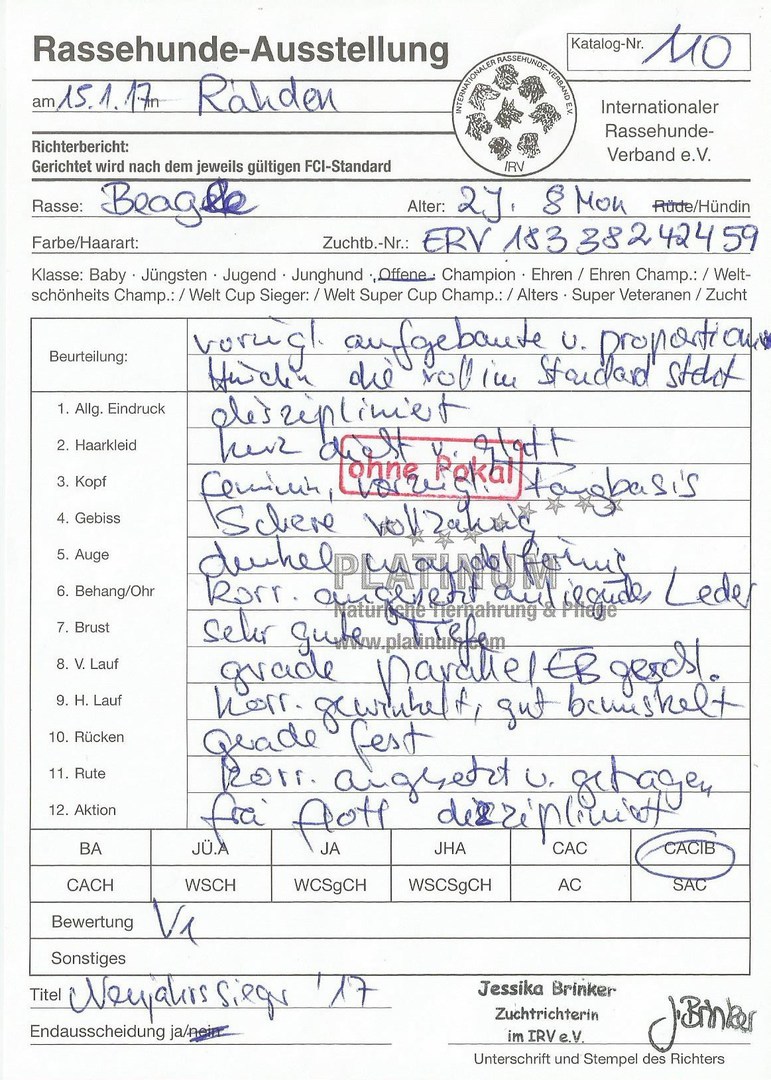 Rassehunde-Ausstellung
Katalog-Nr. 110
am 15.1.17 in Rahden
INTERNATIONALER RASSEHUNDE-VERBAND E.V.
IRV
Internationaler
Rassehunde-
Verband e.V.
Richterbericht:
Gerichtet wird nach dem jeweils gültigen FCI-Standard
Rasse: Beagle Alter: 2 J. 8 Mon Rüde/Hündin
Farbe/Haarart: Zuchtb.-Nr.: ERV 18338242459
Klasse: Baby · Jüngsten · Jugend · Junghund · Offene · Champion · Ehren / Ehren Champ.: / Welt-
schönheits Champ.: / Welt Cup Sieger: / Welt Super Cup Champ.: / Alters · Super Veteranen / Zucht
Beurteilung: vorzügl. aufgebaute u. proportion.
Hündin die voll im Standard steht
1. Allg. Eindruck diszipliniert
2. Haarkleid kurz dicht u. glatt
ohne Pokal
3. Kopf feminin, vorzügl. Fangbasis
4. Gebiss Schere vollzahnig
5. Auge dunkel mandelförmig
PLATINUM
6. Behang/Ohr korr. angesetzt anliegendes Leder
Natürliche Tiernahrung & Pflege
7. Brust sehr gute Tiefe
www.platinum.com
8. V. Lauf grade parallel EB geschl.
9. H. Lauf korr. gewinkelt, gut bemuskelt
10. Rücken grade fest
11. Rute korr. angesetzt u. getragen
12. Aktion frei flott diszipliniert
BA JÜ.A JA JHA CAC CACIB
CACH WSCH WCSgCH WSCSgCH AC SAC
Bewertung V1
Sonstiges
Titel Neujahrssieger '17
Endausscheidung ja/nein
Jessika Brinker
Zuchtrichterin
im IRV e.V.
J. Brinker
Unterschrift und Stempel des Richters